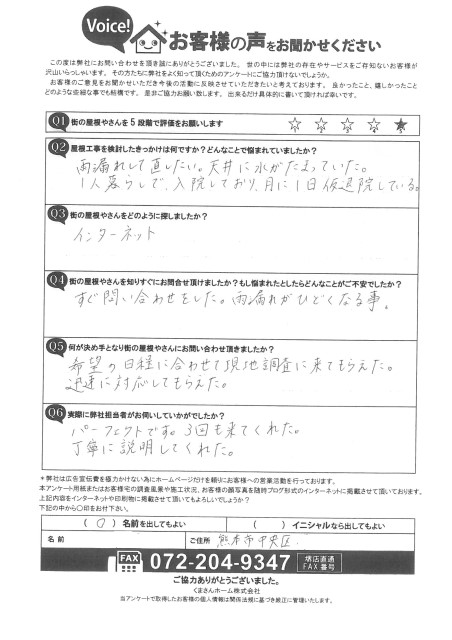 Voice!
お客様の声をお聞かせください
この度は弊社にお問い合わせを頂き誠にありがとうございました。 世の中には弊社の存在やサービスをご存知ないお客様が
沢山いらっしゃいます。 その方たちに弊社をよく知って頂くためのアンケートにご協力頂けないでしょうか。
お客様のご意見をお聞かせいただき今後の活動に反映させていただきたいと考えております。 良かったこと、嬉しかったこと
どのような些細な事でも結構です。 是非ご協力お願い致します。 出来るだけ具体的に書いて頂ければ幸いです。
Q1 街の屋根やさんを5段階で評価をお願いします ☆ ☆ ☆ ☆ ★
Q2 屋根工事を検討したきっかけは何ですか?どんなことで悩まれていましたか?
雨漏れして直したい。天井に水がたまっていた。
1人暮らしで、入院しており、月に1日仮退院している。
Q3 街の屋根やさんをどのように探しましたか?
インターネット
Q4 街の屋根やさんを知りすぐにお問合せ頂けましたか?もし悩まれたとしたらどんなことがご不安でしたか?
すぐ問い合わせをした。雨漏れがひどくなる事。
Q5 何が決め手となり街の屋根やさんにお問い合わせ頂きましたか?
希望の日程に合わせて現地調査に来てもらえた。
迅速に対応してもらえた。
Q6 実際に弊社担当者がお伺いしていかがでしたか?
パーフェクトです。3回も来てくれた。
丁寧に説明してくれた。
*弊社は広告宣伝費を極力かけない為にホームページだけを頼りにお客様への営業活動を行っております。
本アンケート用紙またはお客様宅の調査風景や施工状況、お客様の顔写真を随時ブログ形式のインターネットに掲載させて頂いております。
上記内容をインターネットや印刷物に掲載させて頂いてもよろしいでしょうか?
下記の中から〇印をお付下さい。
( 〇 ) 名前を出してもよい ( ) イニシャルなら出してもよい
名 前 ご住所 熊本市中央区
FAX 072-204-9347 堺店直通 FAX番号
ご協力ありがとうございました。
くまさんホーム株式会社
当アンケートで取得したお客様の個人情報は関係法規に基づき厳正に管理いたします。